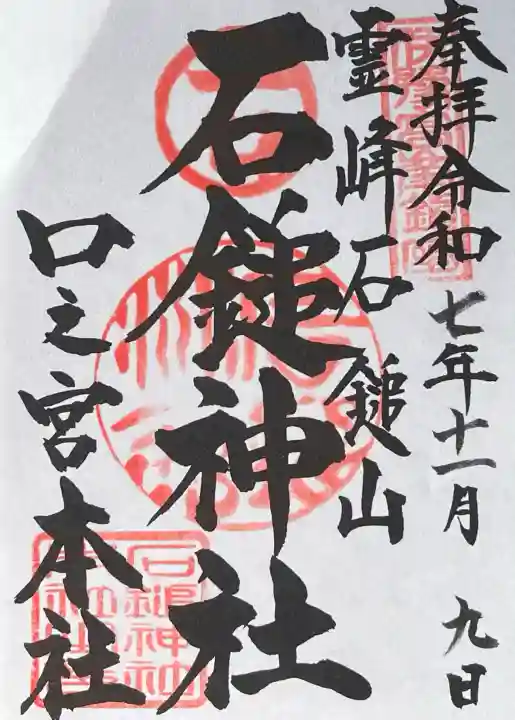 奉拝 令和七年十一月 九日
霊峰 石鎚山
石鎚神社
口之宮本社